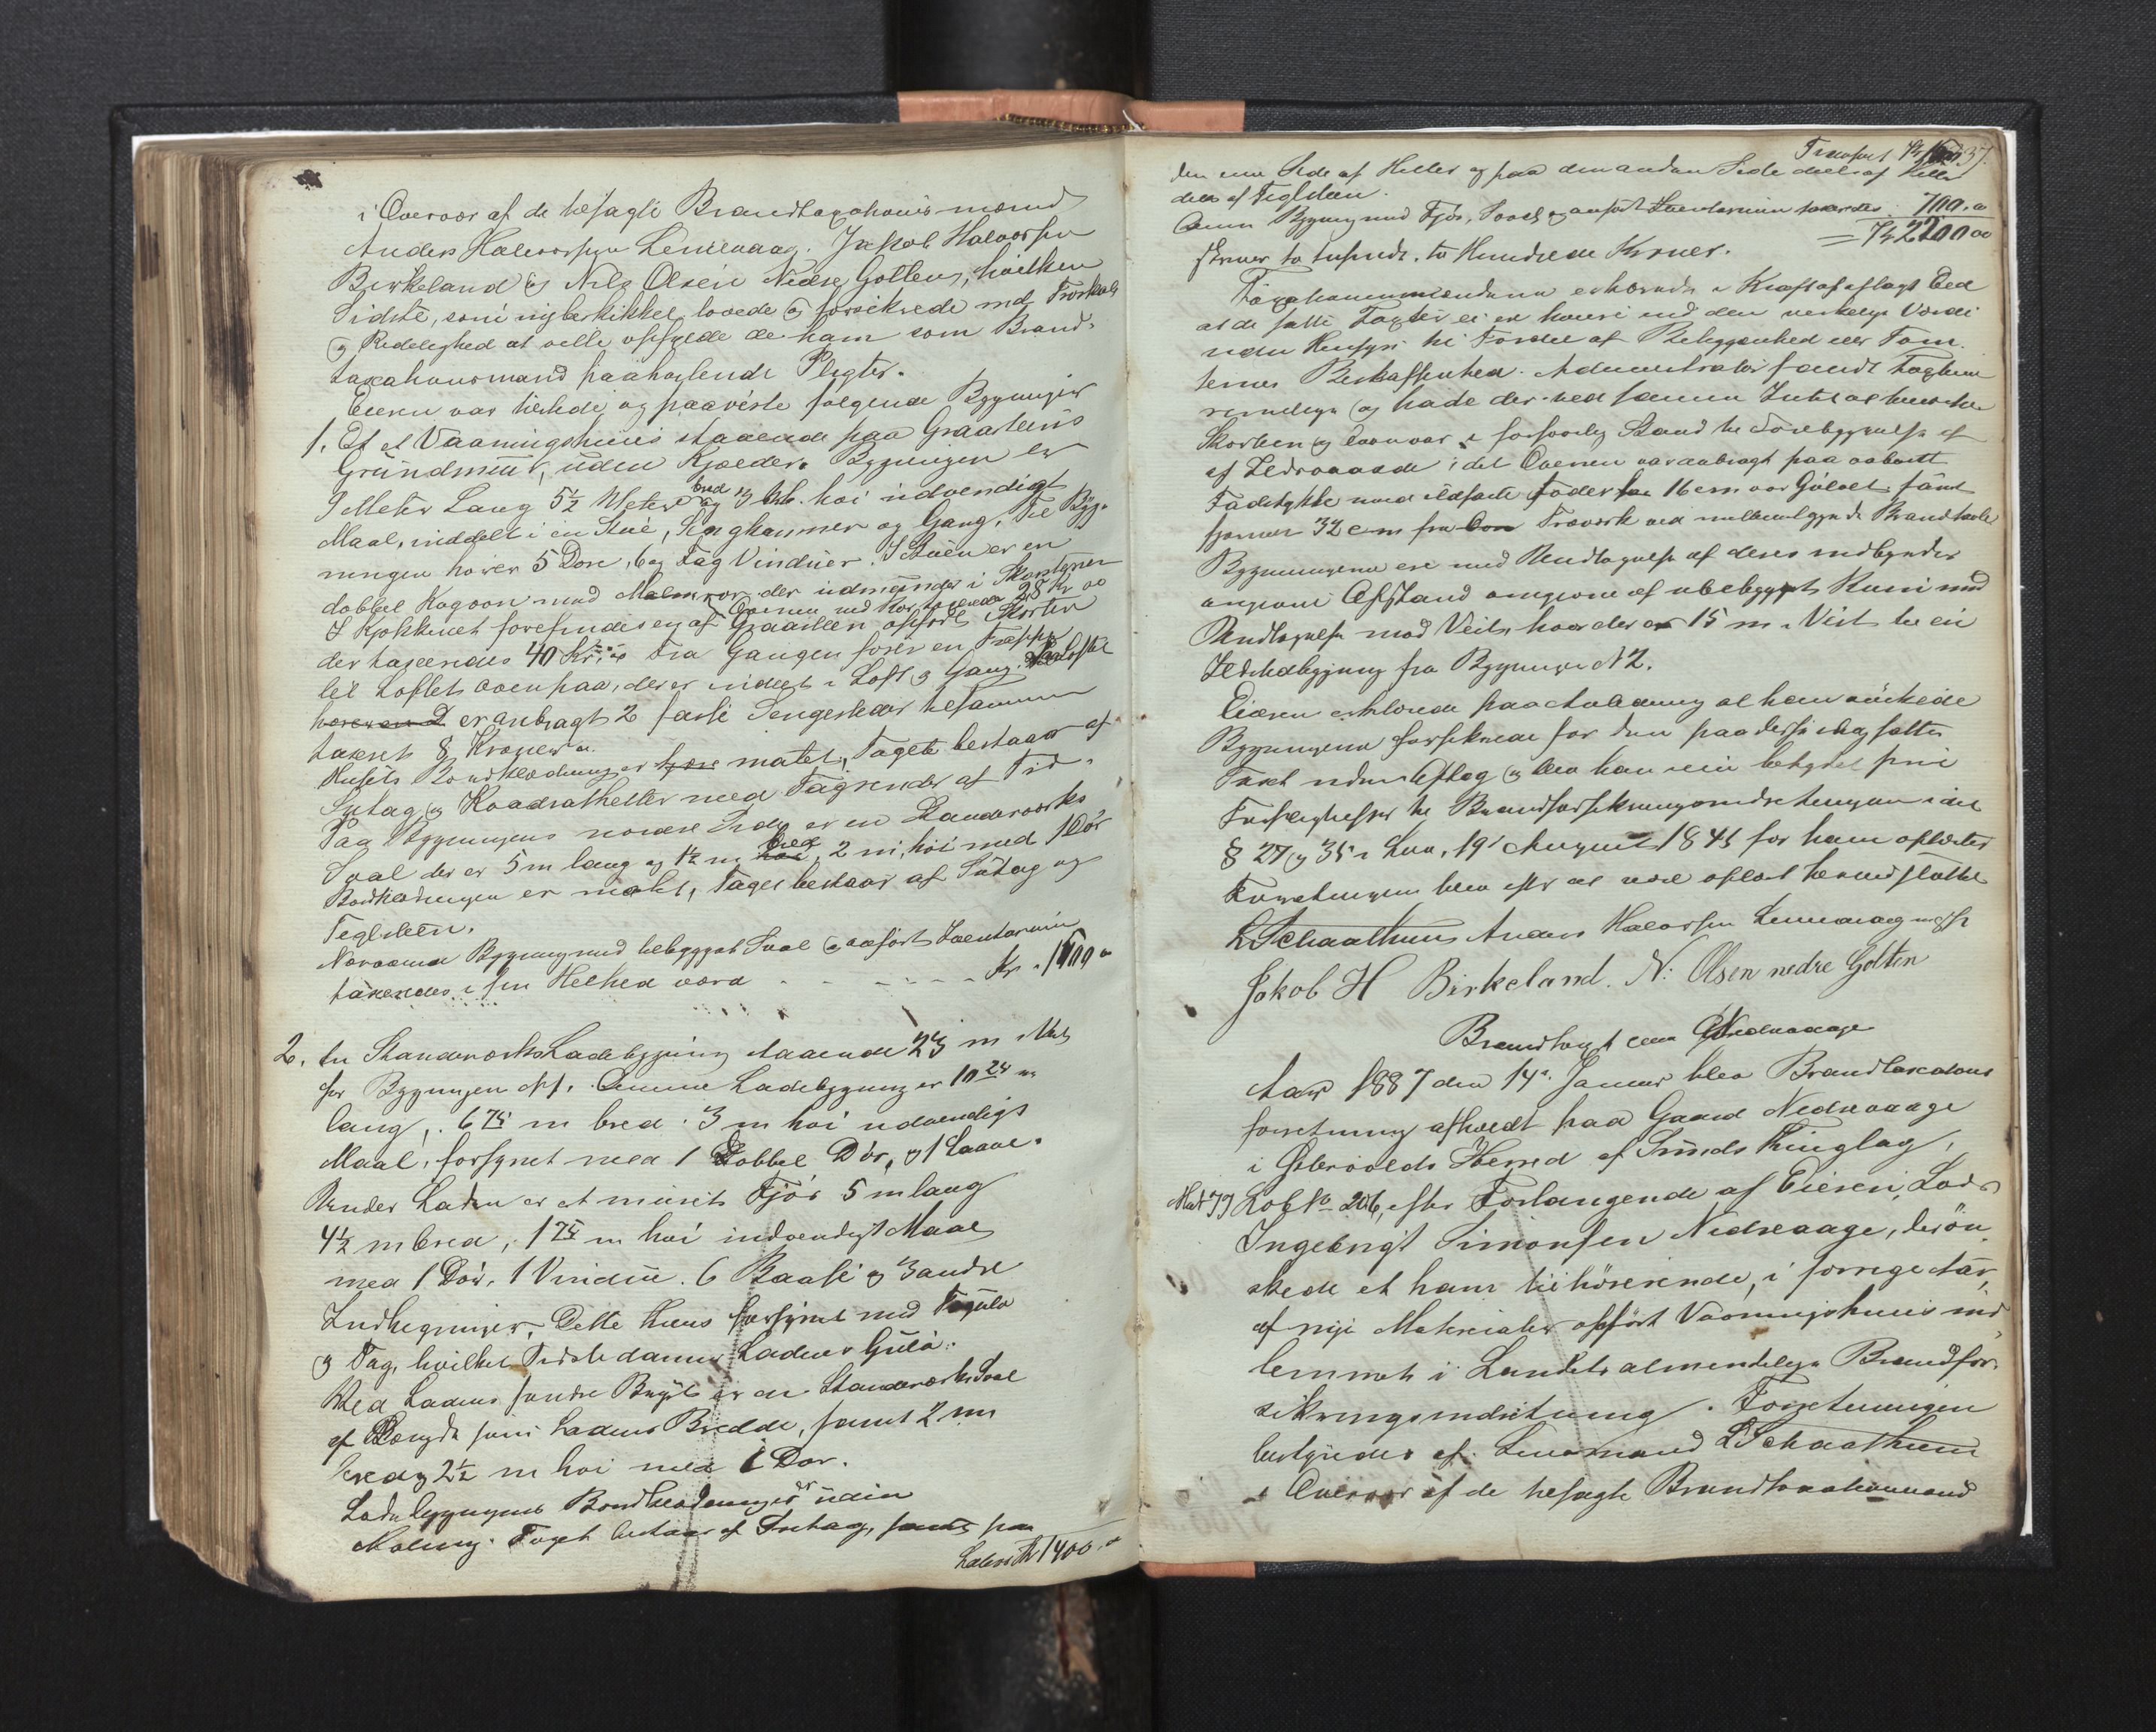 i Overvær af de besagte Brandtaxationsmænd
Anders Halvorsen Lervaag. Jakob Halvorsen
Birkeland og Nils Olsen Nedre Golten, hvilken
Sidste, som nybeskikket lovede og forsikrede med Troskab
og Redelighed at ville opfylde de ham som Brand-
taxationsmand paahvilende Pligter.
Eieren var tilstede og paaviste følgende Bygninger
1. Et Vaaningshuus staaende paa Graasteens
Grundmuur, uden Kjælder. Bygningen er
9 Meter Lang 5½ Meter bred og 3 M. høi udvendigt
Maal, inddelt i en Stue, Sengkammer og Gang. Til Byg-
ningen hører 5 Døre, 6 Fag Vinduer. I Stuen er en
dobbel Kogovn med der udmunder i Skorstenen
Ovnen med Rør taxeredes 28 Kr 00
I Kjøkkenet forefindes en af Graasteen opført Skorsten
der taxeredes 40 Kr. Fra Gangen fører en Trappe
til Loftet ovenpaa, der er inddelt i Loft og Gang. Paa Loftet
er anbragt 2 faste Sengesteder tilsammen
taxeret 8 Kroner
Husets Bordklædning er malet, Taget bestaar af
Sutag og Kvadratheller med Tagrender af Træ.
Paa Bygningens nordre Side er en Standværks
Sval der er 5 m lang og 1½ m bred, 2 m. høi med 1 Dør
Bordklædningen er malet, Taget bestaar af Sutag og
Teglsteen.
Nærværende Bygning med tilbygget Sval og anført Inventarium
taxeredes i sin Helhed værd - - - - - Kr. 1500 "
2. En Standværks Ladebygning staaende 23 m Vest
for Bygningen № 1. Denne Ladebygning er 10 25 m
lang, 6 75 m bred 3 m høi udvendigt
Maal, forsynet med 1 Dobbel Dør, og 1 Laave.
Under Laden er et muret Fjøs 5 m lang
4½ m bred, 1 75 m høi indvendigt Maal
med 1 Dør, 1 Vindue. 6 Baase og 3 andre
Indhegninger. Dette Huus forsynet med
og Tag, hvilket Sidste danner Ladens Gulv.
Ved Ladens søndre er en Standværks Sval
af Længde som Ladens Bredde, samt 2 m
bred og 2½ m høi med 1 Dør.
Ladebygningens Bordklædning er uden
Maling. Taget bestaar af Sutag, paa
Lateris Kr 1400. "
Transport Kr 37.
den ene Side af Heller og paa den anden Side deels af Heller
deels af Teglsteen.
Denne Bygning med Fjøs, Sval og anført Inventarium taxeredes 700. "
= Kr 2200 00
skriver to tusende, to Hundrede Kroner.
Taxationsmændene erklærede i Kraft af aflagt Eed
at de satte Taxter ei er høiere end den virkelige Værdi
uden Hensyn til Fordel af Beliggenhed eller Tom-
ternes Beskaffenhed. Administrator fandt Taxterne
rimelige og havde der ved samme Intet at bemærke
Skorsten og Ovn var i forsvarlig Stand til Forebyggelse af
af Ildsvaade, idet Ovnen var anbragt paa
Fodstykke med Fødder 16 cm over Gulvet samt
fjernet 32 cm fra Træværk ved mellemliggende
Bygningerne ere med Undtagelse af deres indbyrdes
angivne Afstand omgivne af ubebygget Rum med
Undtagelse mod Vest, hvor der er 15 m. Vest til en
Ildstedsbygning fra Bygningen № 2.
Eieren erklærede paa Anledning at han ønskede
Bygningerne forsikrede for den paa disse idag satte
Taxt uden Afslag og blev han nu betydet sine
Forpligtelser til Brandforsikringsindretningen i det
§ 27 og 35 i Lov, 19de August 1845 for ham oplæstes
Forretningen blev efter at være oplæst hermed sluttet
L Schaathuns Anders Halvorsen Lervaag
Jakob H Birkeland. N: Olsen nedre Golten
Brandtaxt over Nedreaage
Aar 1887 den 14de Januar blev Brandtaxations
forretning afholdt paa Gaard Nedreaage
i Østervolds Herred af Sunds Thinglag,
Mat 79 Løb № 206, efter Forlangende af Eieren, Lods
Ingebrigt Simonsen Nedreaage, der øn-
skede et ham tilhørende, i forrige Aar,
af nye Materialer opført Vaaningshuus ind-
lemmet i Landets almindelige Brandfor-
sikringsindretning. Forretningen
bestyredes af Lensmand L Schaathun
i Overvær af de besagte Brandtaxationmænd